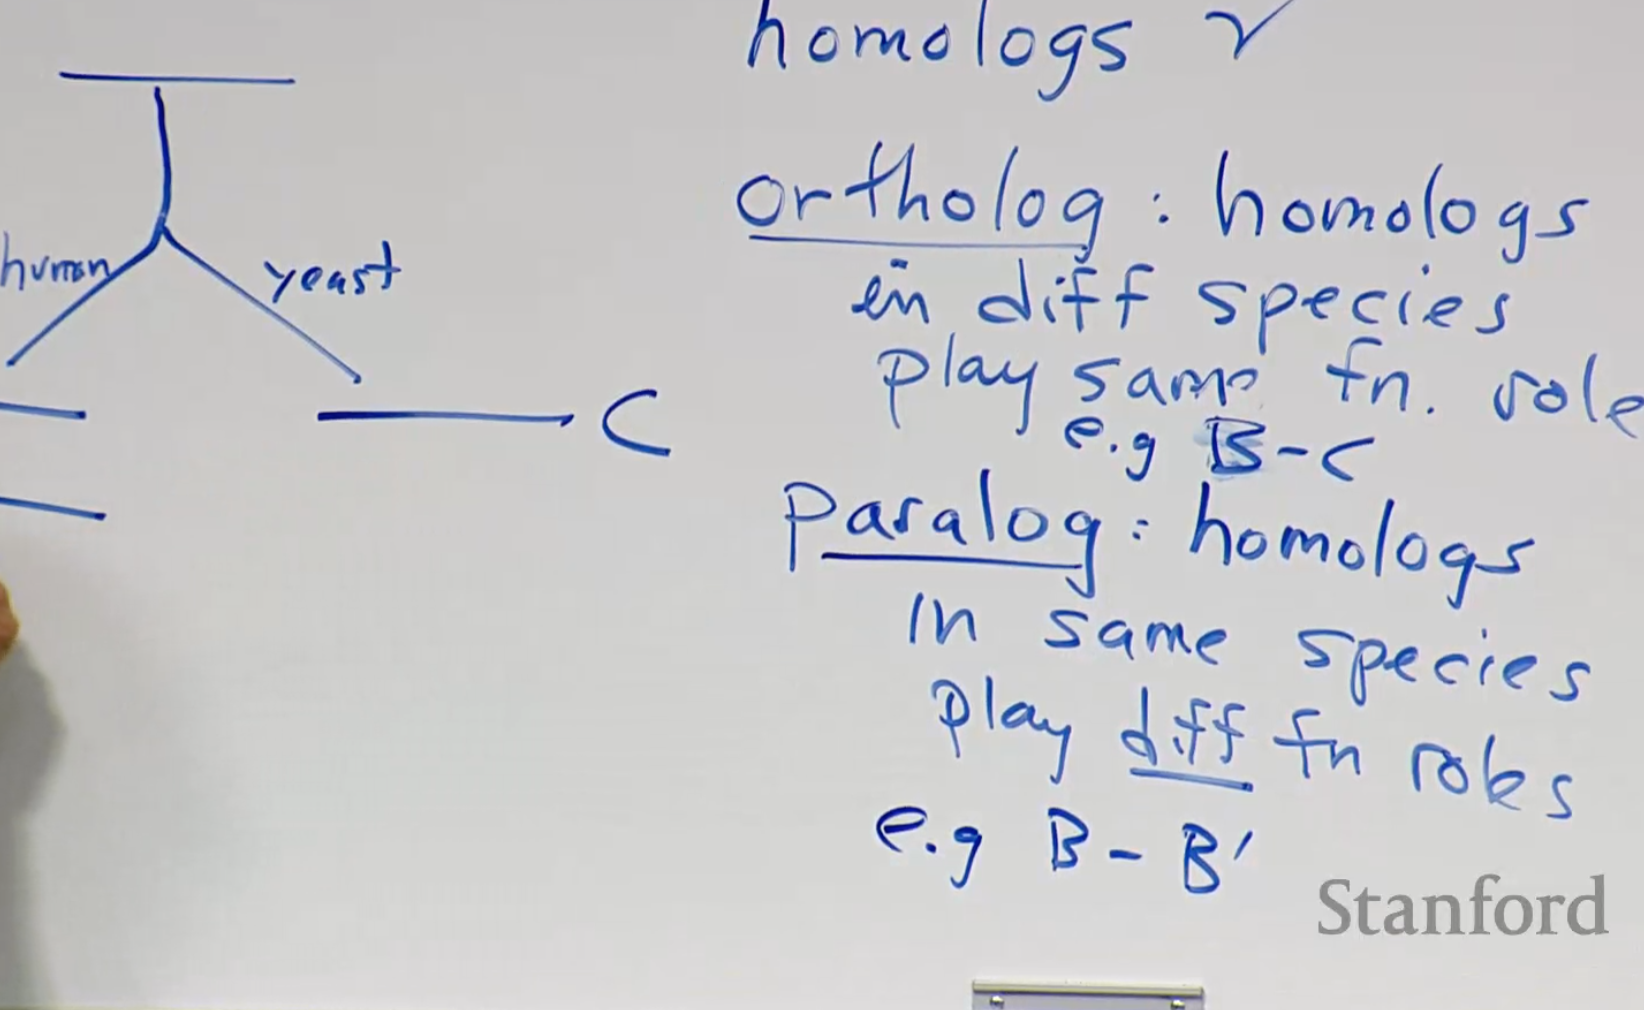 homologs ✓
human
yeast
C
ortholog : homologs
in diff species
play same fn. role
e.g B-C
paralog : homologs
in same species
play diff fn roles
e.g B - B'
Stanford